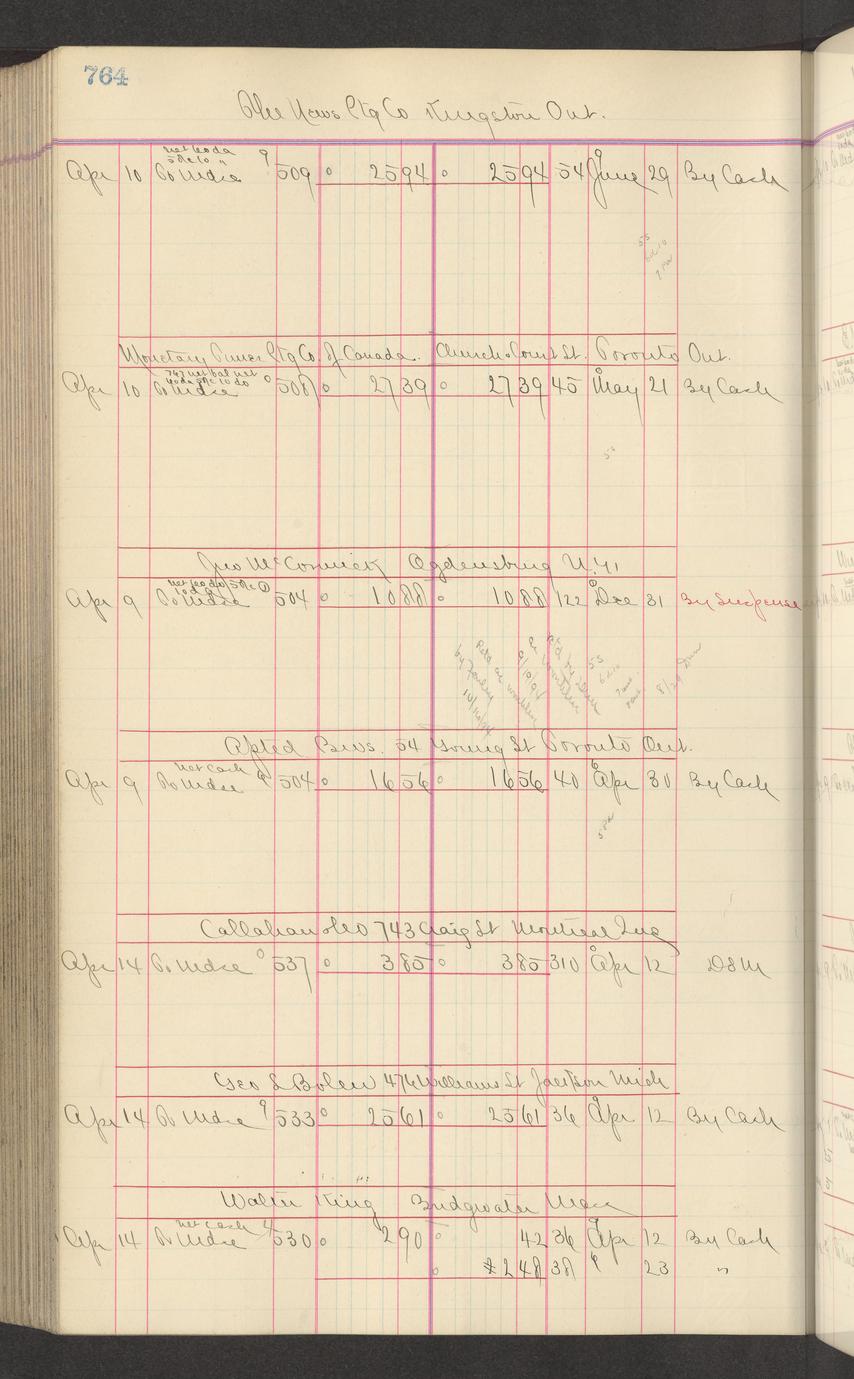 764
The News Ptg Co Kingston Ont.
net 60 da
5% 10 "
Apr 10 To Mdse 509 2594 2594 54 June 29 By Cash
55
Monetary Times Ptg Co. of Canada. Church & Court St. Toronto Ont.
Apr 10 To Mdse 508 2739 2739 45 May 21 By Cash
Jno McCormick Ogdensburg N.Y.
net 60 da 5%
10 da
Apr 9 To Mdse 504 1088 1088 122 Dec 31 By Suspense
55
Apted Bros. 54 Young St Toronto Ont.
net Cash
Apr 9 To Mdse 504 1656 1656 40 Apr 30 By Cash
Callahan & Co 743 Craig St Montreal Que
Apr 14 To Mdse 537 385 385 310 Apr 12 D&M
Geo S Bolen 476 Williams St Jackson Mich
Apr 14 To Mdse 533 2561 2561 36 Apr 12 By Cash
Walter King Bridgwater Mass
net Cash
Apr 14 To Mdse 530 290 42 36 Apr 12 By Cash
248 38 " 23 "